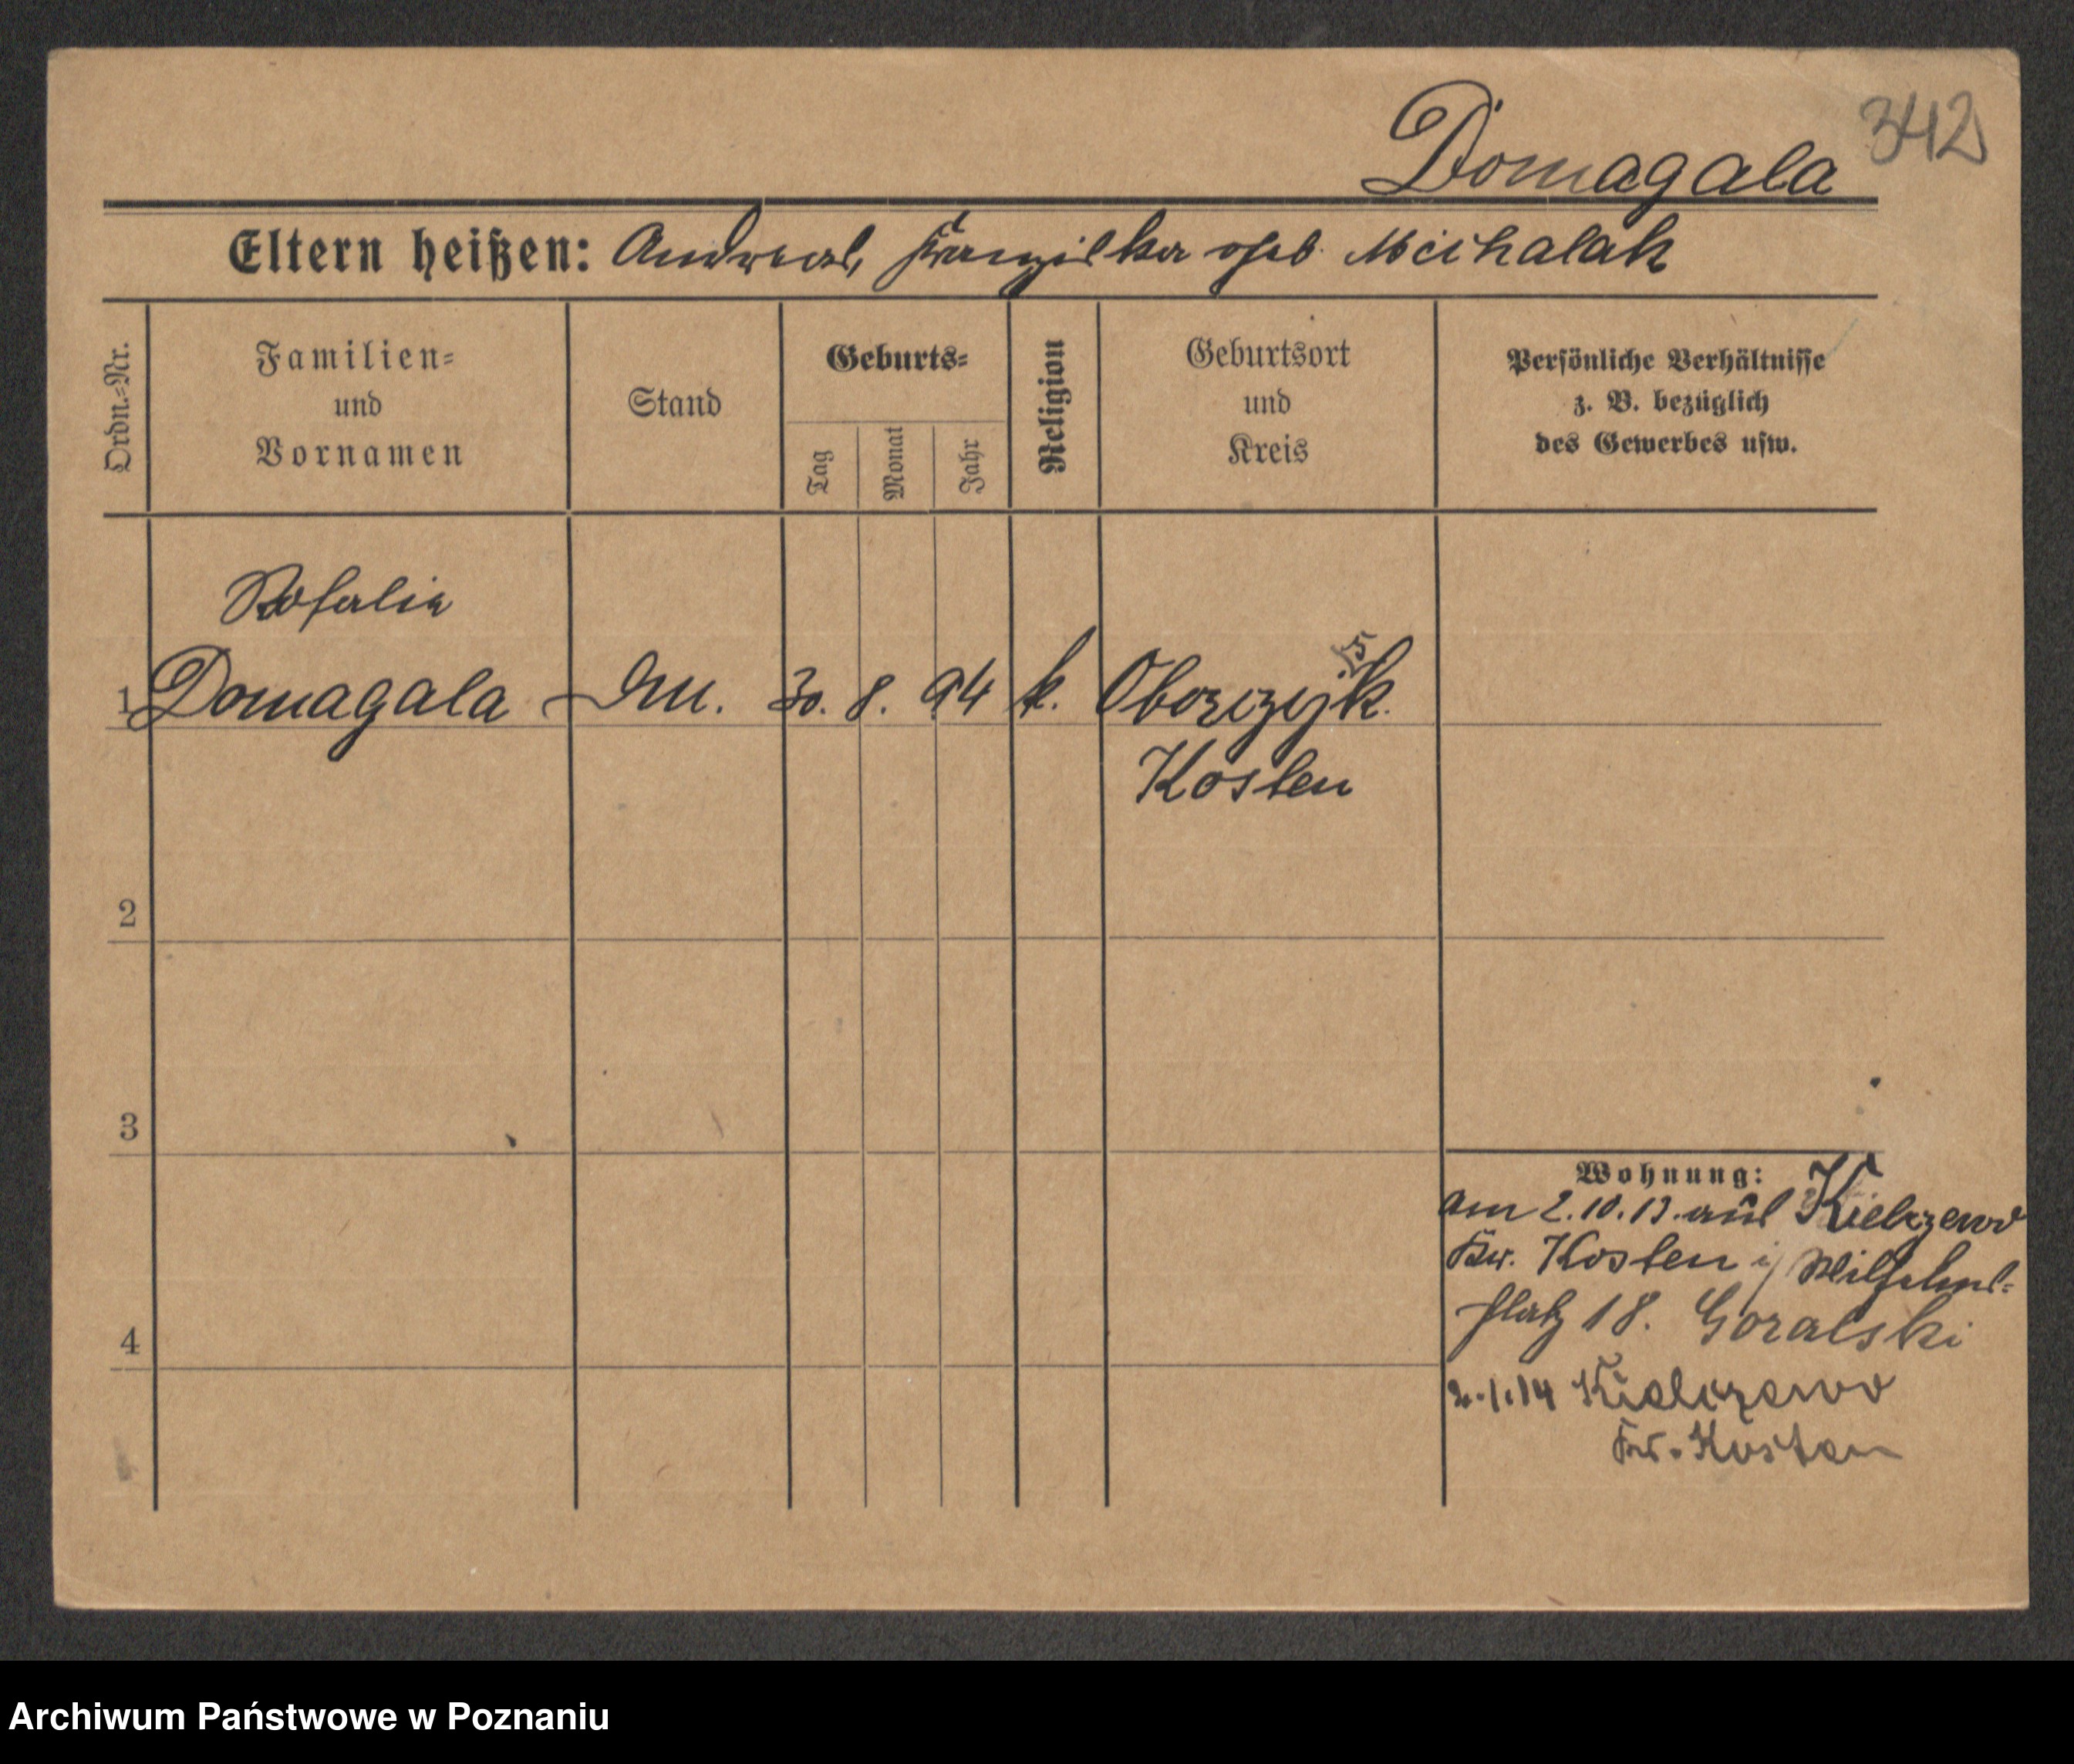 Domagala 342
Eltern heißen: Andreas, Franziska geb. Michalak
Ordn.=Nr.
Familien=
und
Vornamen
Stand
Geburts=
Tag
Monat
Jahr
Religion
Geburtsort
und
Kreis
Persönliche Verhältnisse
z. B. bezüglich
des Gewerbes usw.
Rosalia
1 Domagala 30. 8. 94 k.
Kosten
2
3
4
Wohnung:
am 2.10.13. aus Kielczewo
Kr. Kosten Wilhelms=
platz 18. Goralski
2.1.14 Kielczewo
Kr. Kosten
Archiwum Państwowe w Poznaniu